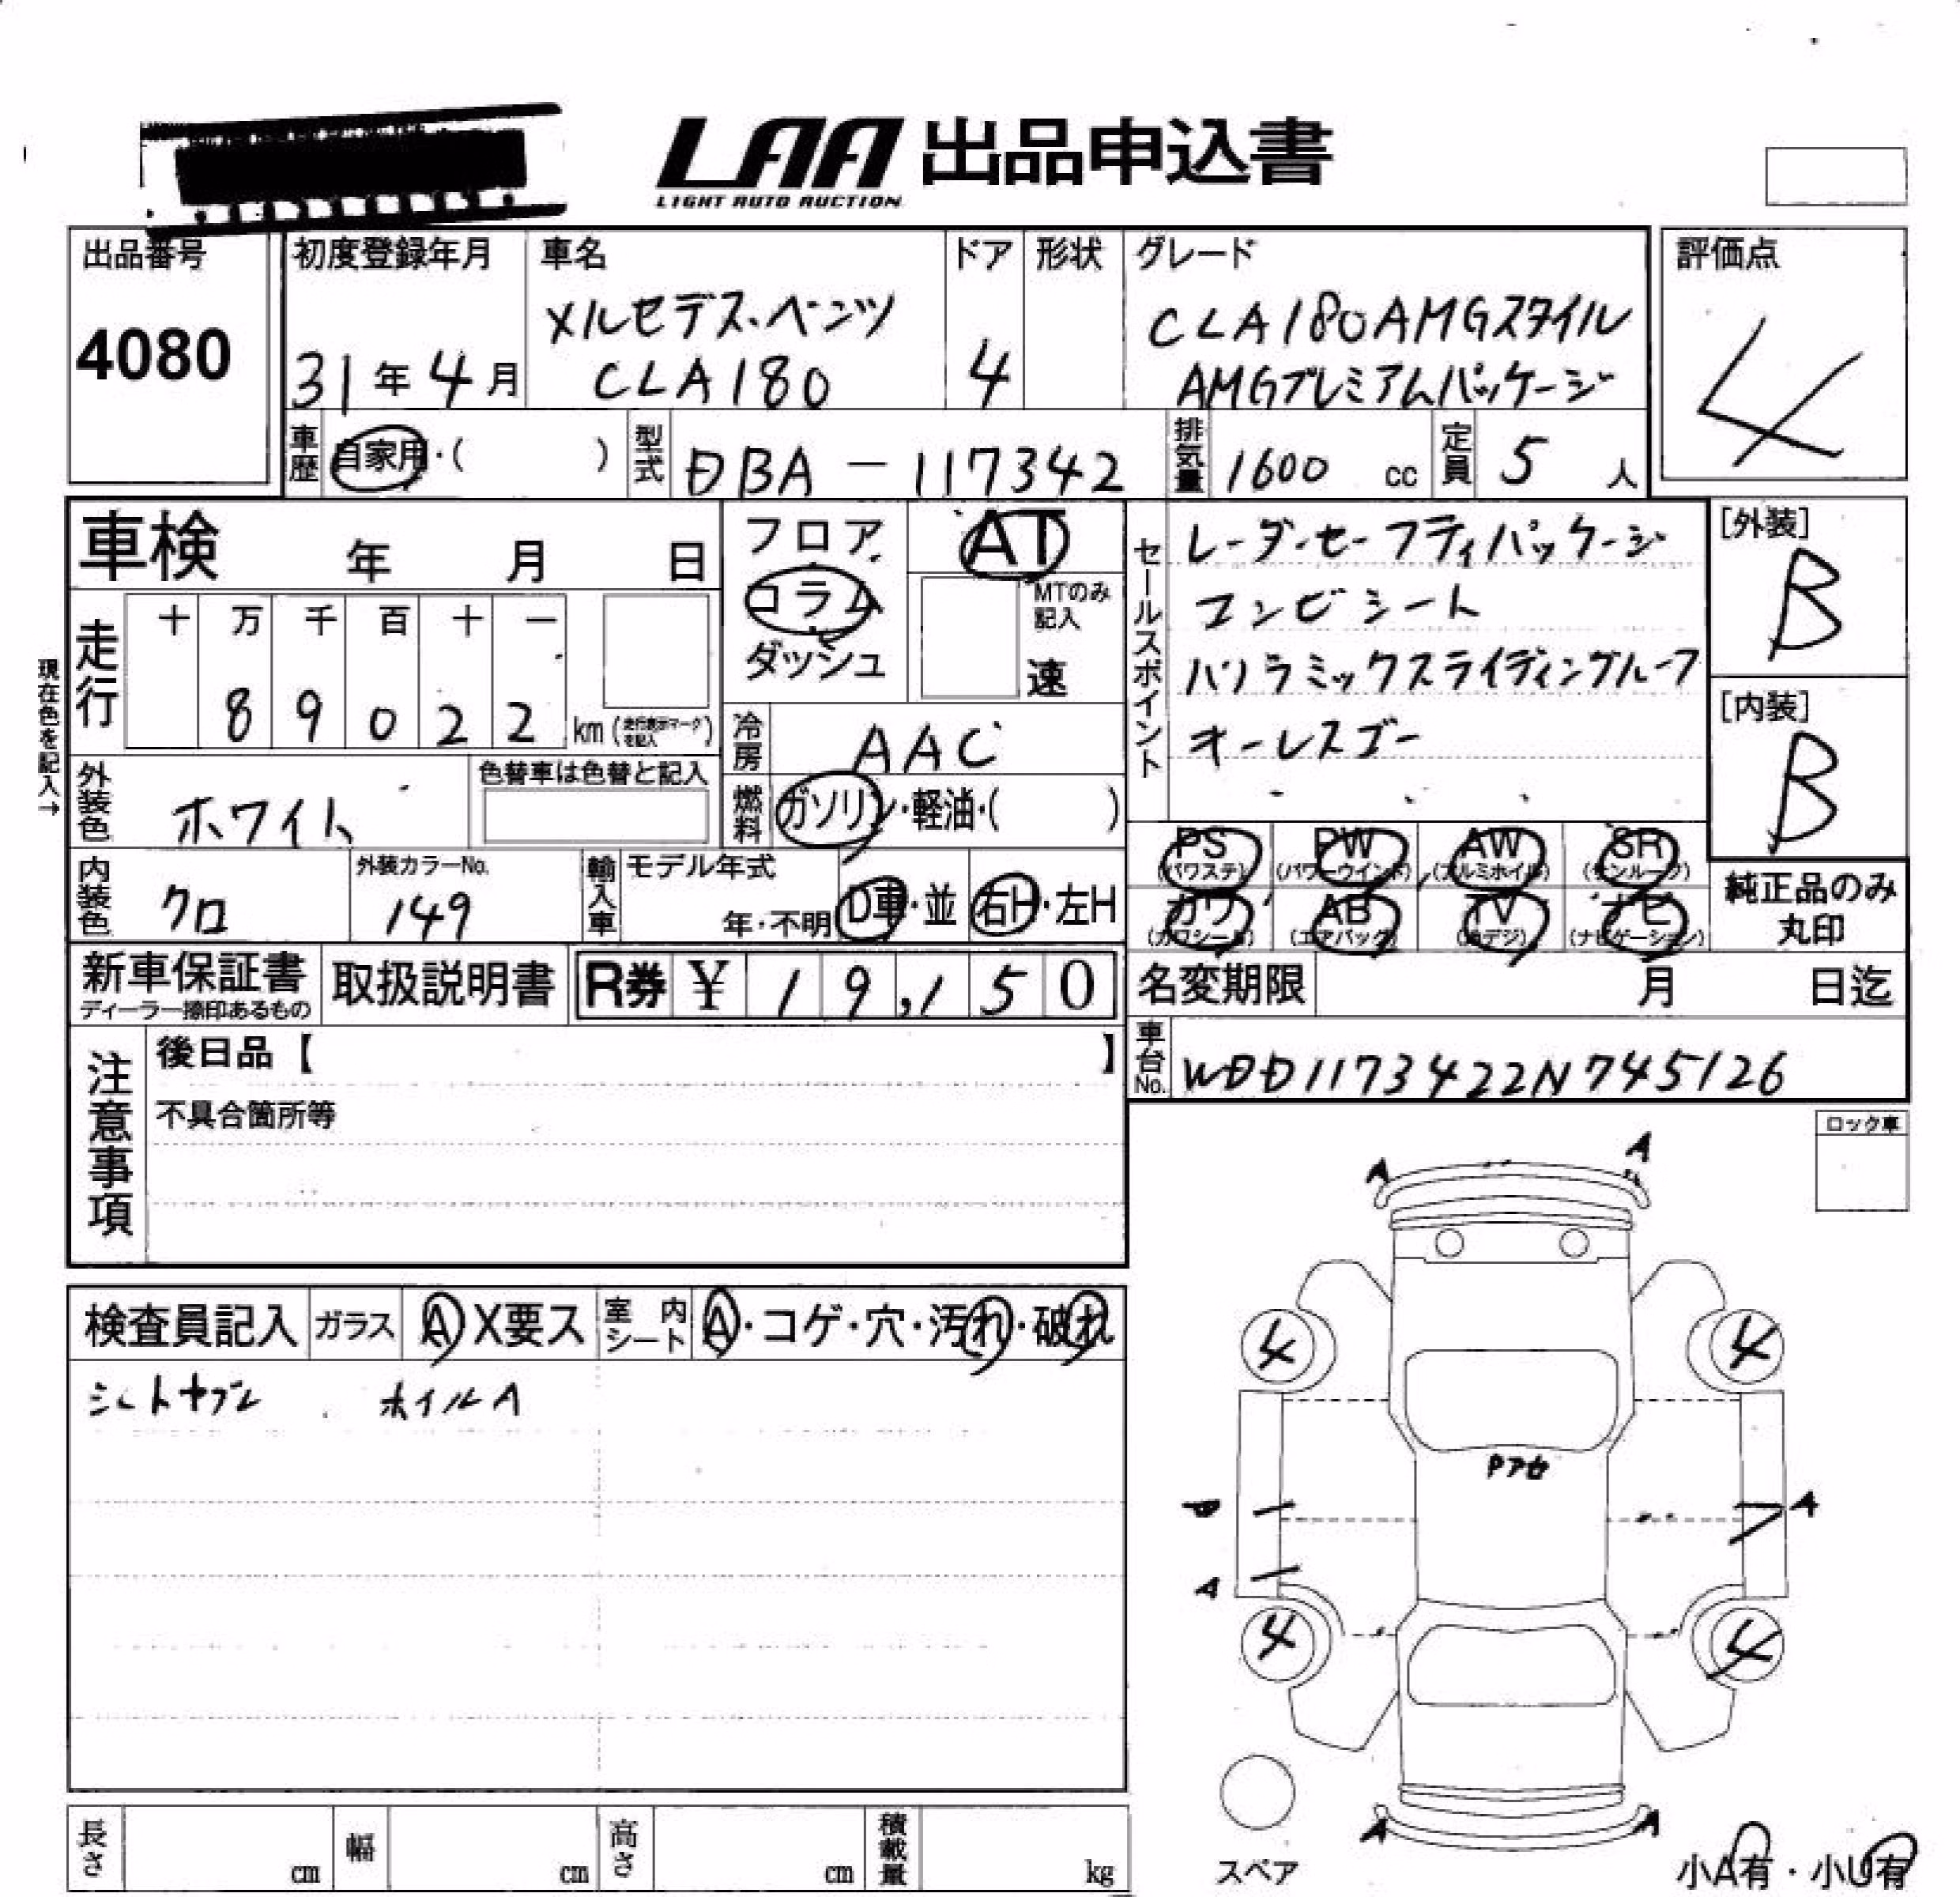 LAA 出品申込書
LIGHT AUTO AUCTION
出品番号
4080
初度登録年月
31年4月
車名
メルセデス・ベンツ
CLA180
ドア
4
形状
グレード
CLA180AMGスタイル
AMGプレミアムパッケージ
評価点
4
車歴 自家用・( )
型式 DBA-117342
排気量 1600 cc
定員 5 人
車検 年 月 日
現在色を記入→
走行
十 万 千 百 十 一
8 9 0 2 2 km(走行表示マークを記入)
フロア
コラム
ダッシュ
AT
MTのみ記入
速
冷房 AAC
燃料 ガソリン・軽油・( )
外装色 ホワイト
色替車は色替と記入
内装色 クロ
外装カラーNo.
149
輸入車 モデル年式
年・不明
D車・並
右H・左H
セールスポイント
レーダーセーフティパッケージ
コンビシート
パノラミックスライディングルーフ
オーレスゴー
[外装]
B
[内装]
B
PS(パワステ) PW(パワーウインド) AW(アルミホイル) SR(サンルーフ)
カワ(カワシート) AB(エアバック) TV(地デジ) ナビ(ナビゲーション)
純正品のみ
丸印
新車保証書
ディーラー捺印あるもの
取扱説明書
R券 ¥ 19,150
名変期限 月 日迄
車台No. WDD1173422N745126
注意事項
後日品【 】
不具合箇所等
ロック車
検査員記入
ガラス A X要ス
室内シート A・コゲ・穴・汚れ・破れ
シートヤブレ ホイルA
A A
4 4
A
A
4 4
A A
スペア
小A有・小U有
長さ cm
幅 cm
高さ cm
積載量 kg